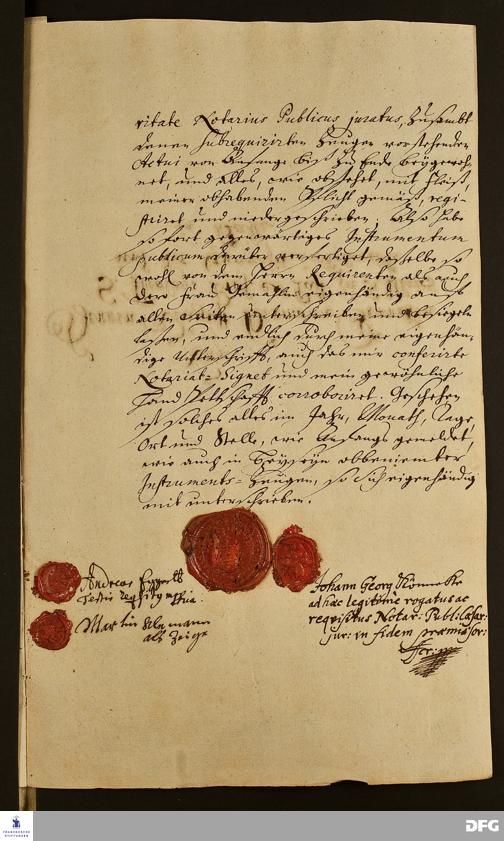 ritate Notarius Publicus juratus, Zusambt
denen Subrequirirten Zeugen vorstehenden
Actui von Anfange biß zu Ende beygewoh-
net, und alles, wie obstehet, mit Fleiß,
meiner obhabenden Pflicht gemäß, regi-
striret und niedergeschrieben. Also habe
so fort gegenwärtiges Instrumentum
Publicum darüber verfertiget, dasselbe so
wohl von dem Herrn Requirenten als auch
dero Frau Gemahlin eigenhändig auf
allen Seiten unterschreiben und besiegeln
lassen, und endlich durch meine eigenhän-
dige Unterschrifft, auch das mir conferirte
Notariat-Signet und mein gewöhnliche
Hand Pettschafft corroboriret. Geschehen
ist solches alles im Jahr, Monath, Tage,
Ort und Stelle, wie Anfangs gemeldet,
wie auch in Beyseyn obbeniemter
Instruments-Zeugen, so sich eigenhändig
mit unterschrieben.
Andreas
Testis
Martin
als Zeuge
Johann Georg
ad hac legitime rogatus ac
requisitus Notar: Publ: Caesar:
jur: in fidem præmissor:
DFG
FRANCKESCHE
STIFTUNGEN